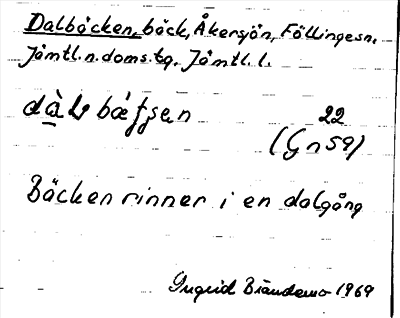 Dalbäcken, bäck, Åkersjön, Föllingesn,
Jämtl.n.doms.tg. Jämtl.l.
22
(Gn59)
Bäcken rinner i en dalgång
Ingrid Brändemo 1969